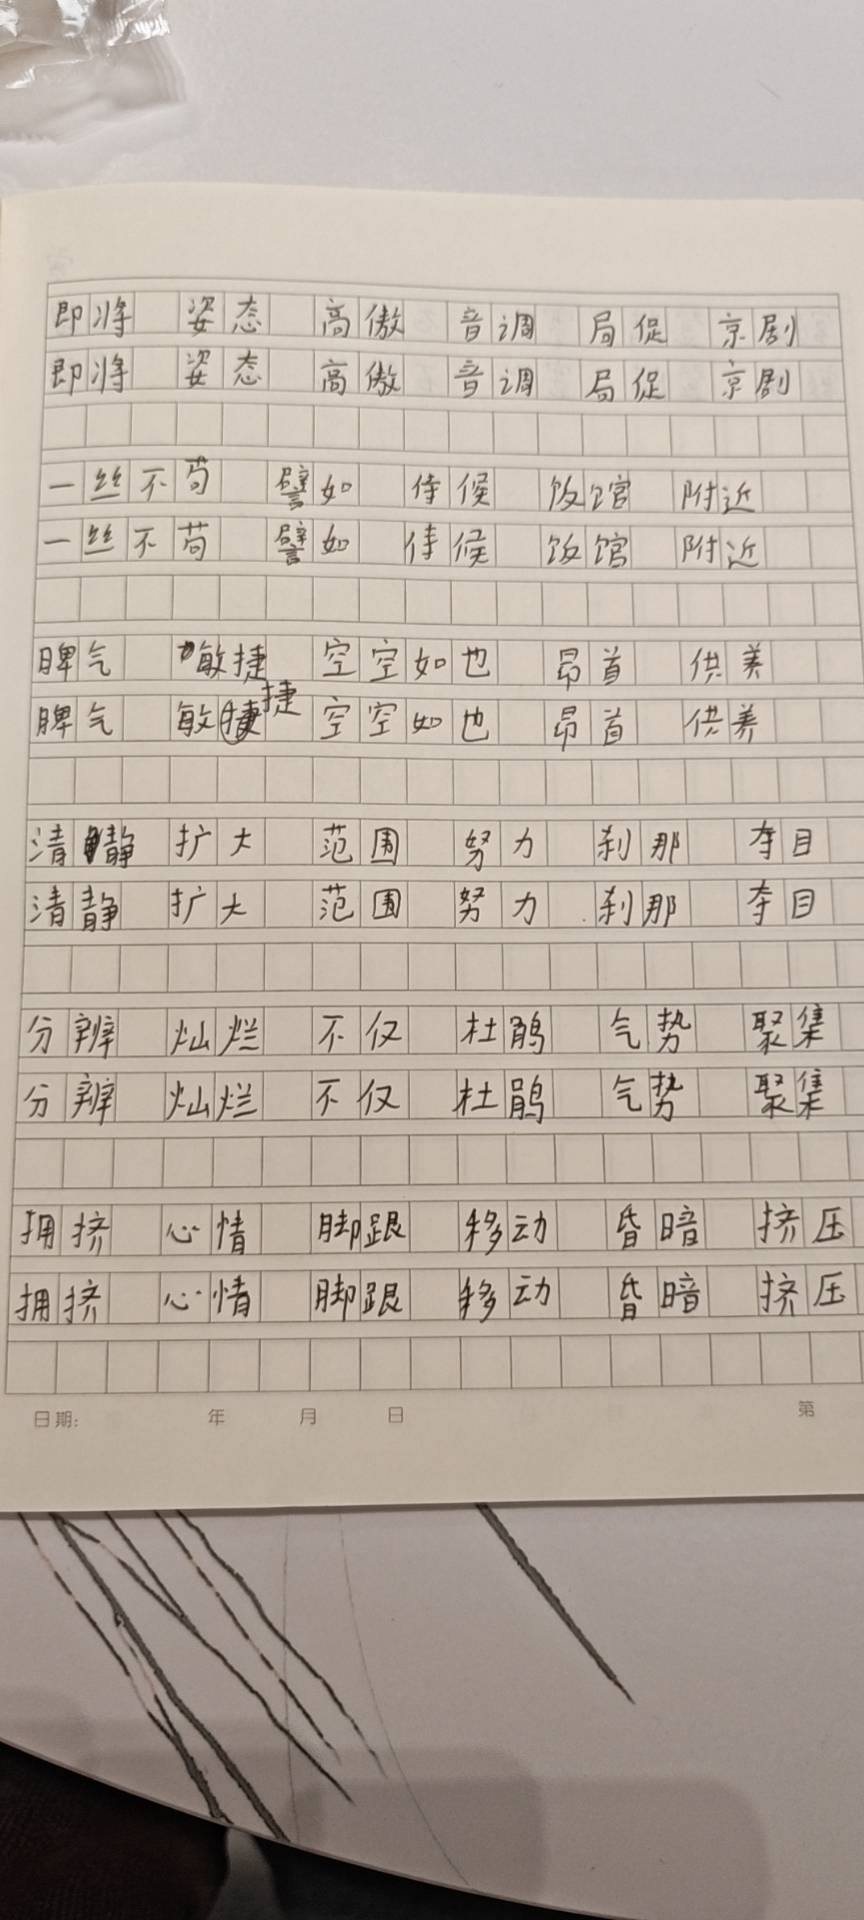 即将 姿态 高傲 音调 局促 京剧
即将 姿态 高傲 音调 局促 京剧
一丝不苟 譬如 侍候 饭馆 附近
一丝不苟 譬如 侍候 饭馆 附近
脾气 敏捷 空空如也 昂首 供养
脾气 敏捷 空空如也 昂首 供养
清静 扩大 范围 努力 刹那 夺目
清静 扩大 范围 努力 刹那 夺目
分辨 灿烂 不仅 杜鹃 气势 聚集
分辨 灿烂 不仅 杜鹃 气势 聚集
拥挤 心情 脚跟 移动 昏暗 挤压
拥挤 心情 脚跟 移动 昏暗 挤压
日期： 年 月 日 第